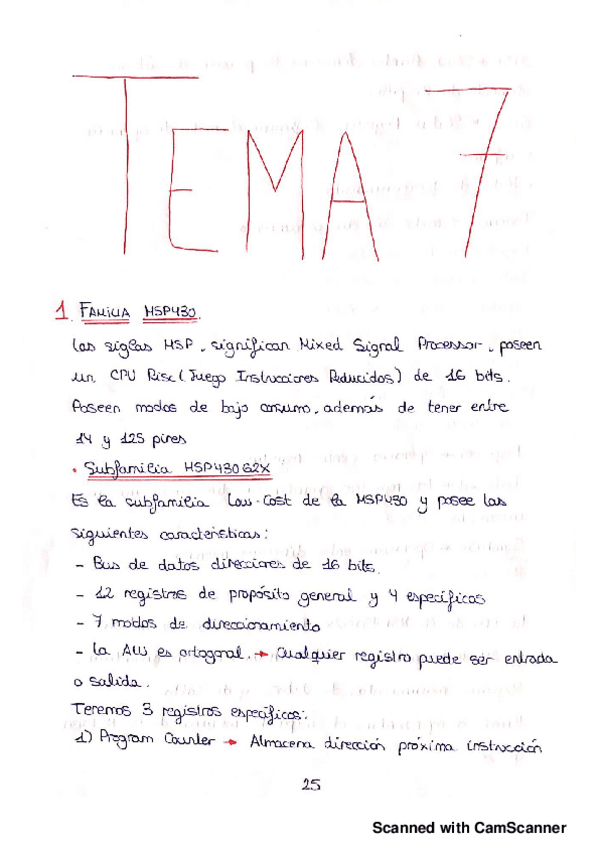 TEMA 7
1. FAMILIA MSP430.
Las siglas MSP, significan Mixed Signal Processor, poseen
un CPU Risc (Juego Instrucciones Reducidos) de 16 bits.
Poseen modos de bajo consumo, además de tener entre
14 y 125 pines
• Subfamilia MSP430G2X
Es la subfamilia Low-Cost de la MSP430 y posee las
siguientes características:
- Bus de datos direcciones de 16 bits.
- 12 registros de propósito general y 4 específicos
- 7 modos de direccionamiento
- La ALU es ortogonal. → Cualquier registro puede ser entrada
o salida.
Tenemos 3 registros específicos:
1) Program Counter → Almacena dirección próxima instrucción
25
Scanned with CamScanner